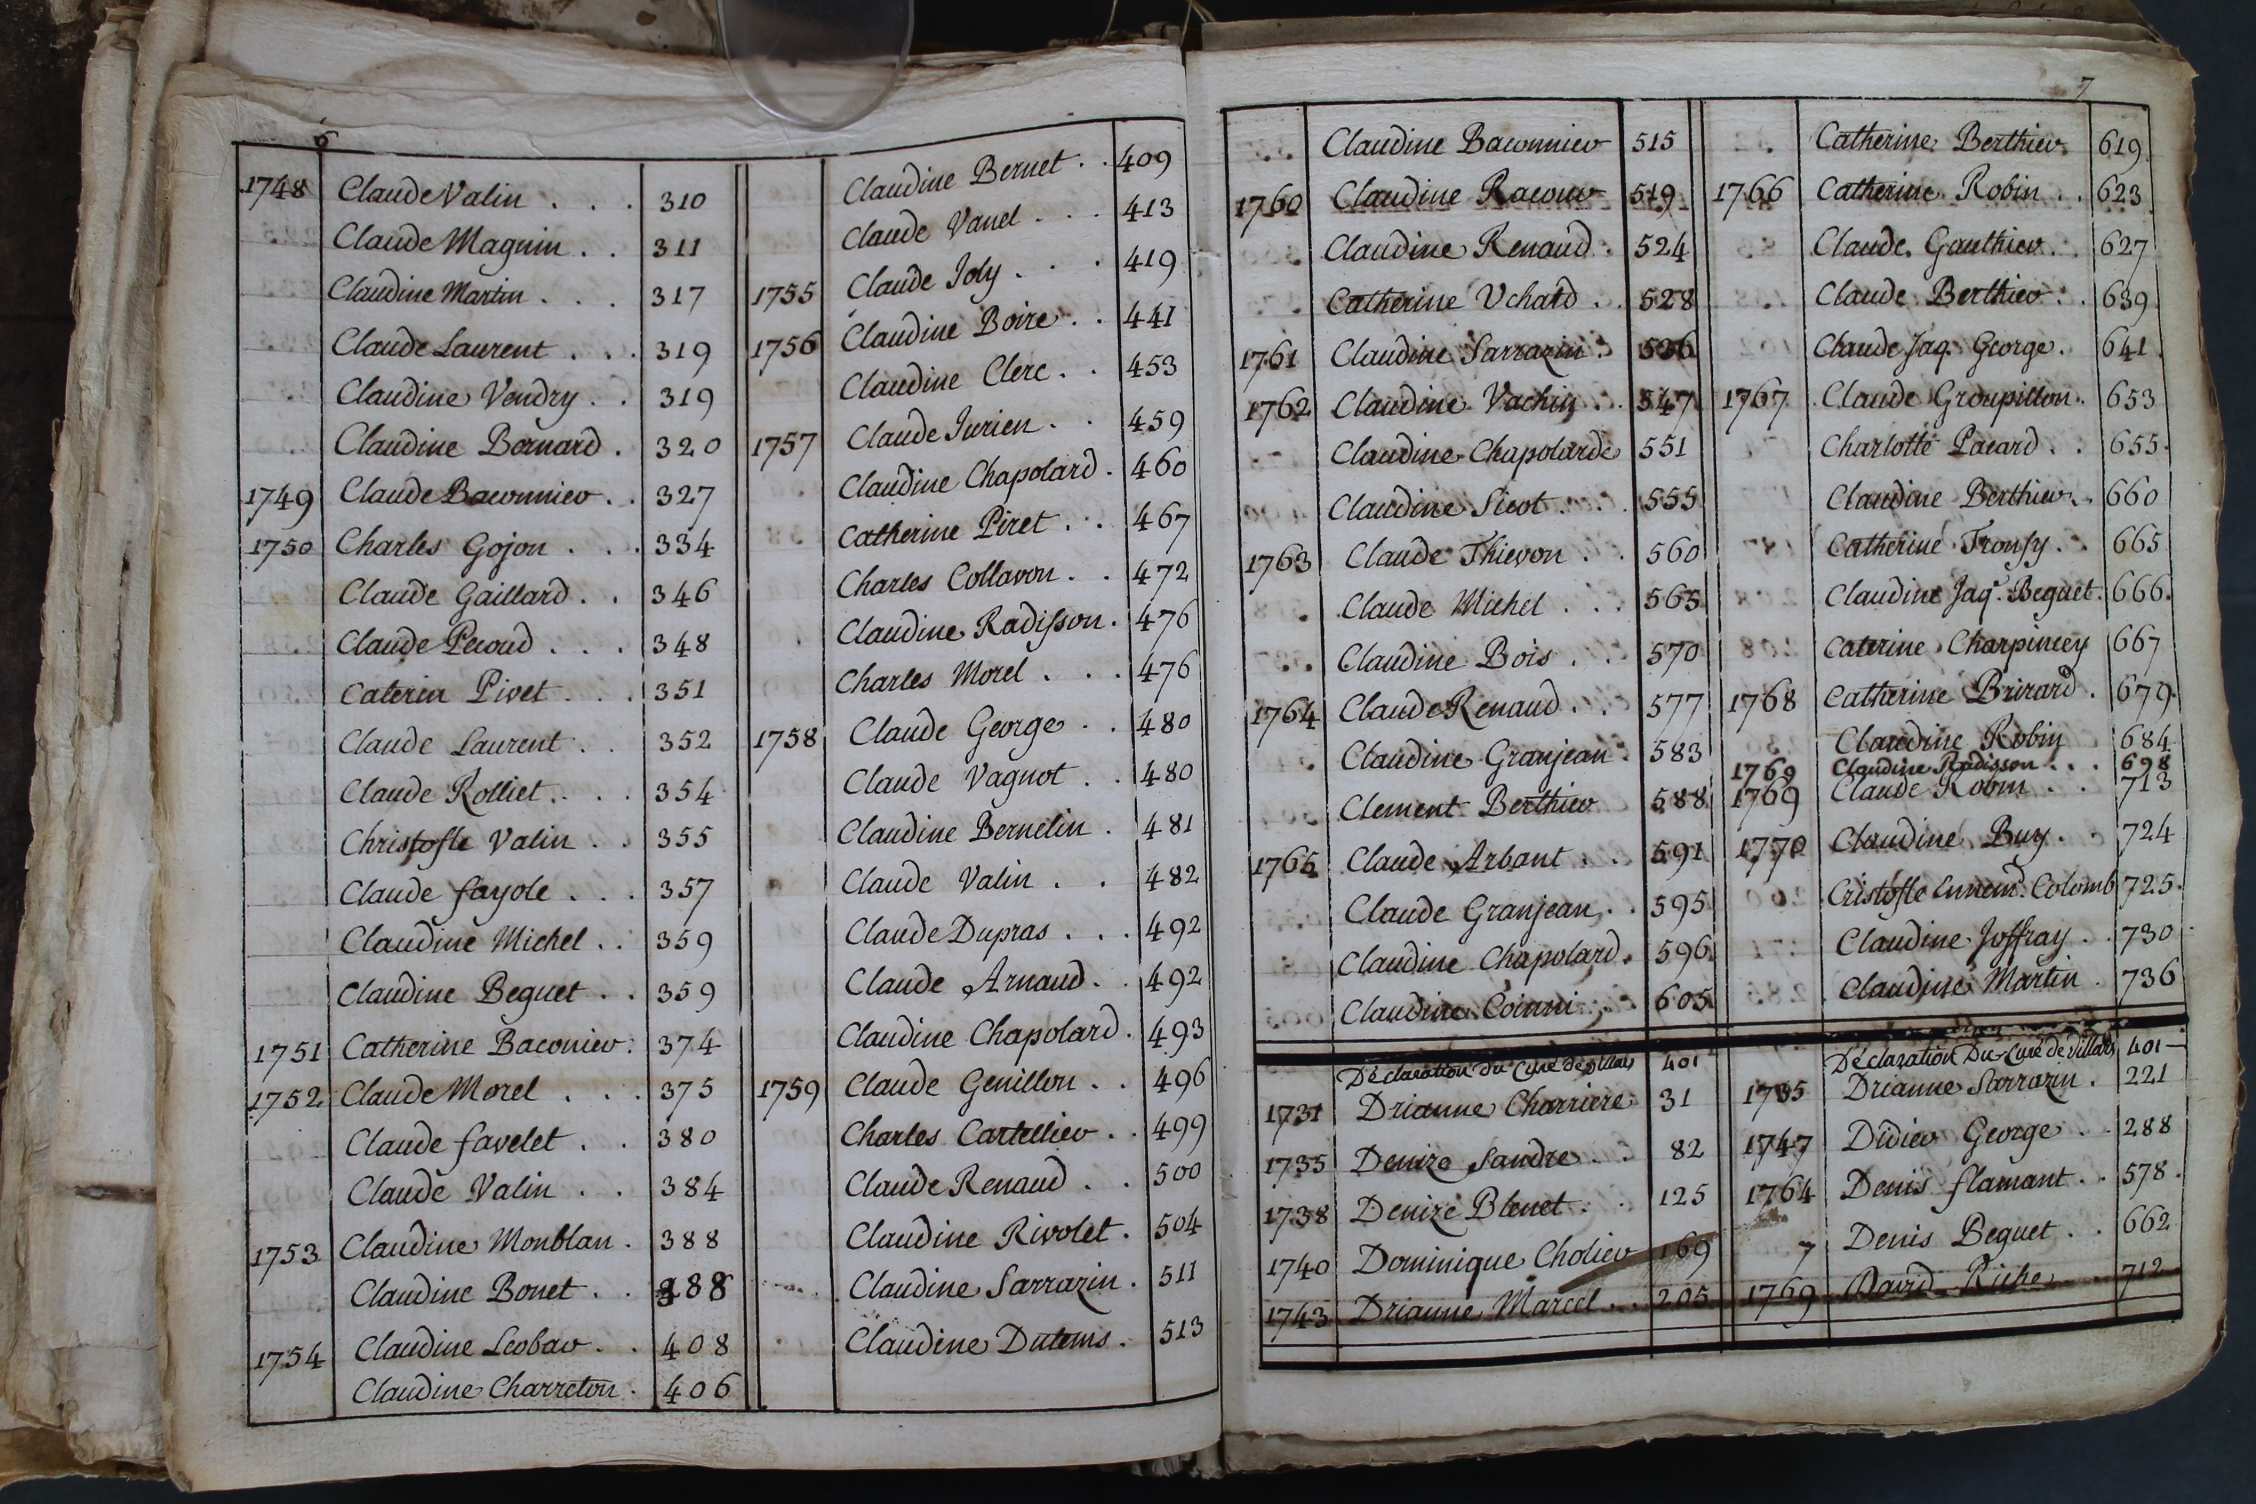 6
1748 Claude Valin . . . 310
Claude Magnin . . 311
Claudine Martin . . . 317
Claude Laurent . . . 319
Claudine Vendry . . 319
Claudine Bernard . 320
1749 Claude Baconnier . . 327
1750 Charles Gojon . . . 334
Claude Gaillard . . 346
Claude Pecoud . . . 348
Caterin Pivet . . . 351
Claude Laurent . . 352
Claude Rolliet . . . 354
Christofle Valin . . 355
Claude fayole . . . 357
Claudine Michel . . 359
Claudine Beguet . . 359
1751 Catherine Baconier . 374
1752 Claude Morel . . . 375
Claude favelet . . 380
Claude Valin . . 384
1753 Claudine Monblan . 388
Claudine Bonet . . 388
1754 Claudine Leobar . . 408
Claudine Charreton . 406
Claudine Bernet . . 409
Claude Vanel . . . 413
1755 Claude Joly . . . 419
1756 Claudine Boire . . 441
Claudine Clerc . . 453
1757 Claude Jurien . . 459
Claudine Chapolard . 460
Catherine Piret . . 467
Charles Collavon . . 472
Claudine Radisson . 476
Charles Morel . . . 476
1758 Claude George . . 480
Claude Vagnot . . 480
Claudine Bernelin . 481
Claude Valin . . 482
Claude Dupras . . . 492
Claude Arnaud . . 492
Claudine Chapolard . 493
1759 Claude Genillon . . 496
Charles Cartellier . . 499
Claude Renaud . . 500
Claudine Rivolet . 504
Claudine Sarrazin . 511
Claudine Dutems . 513
7
Claudine Baconnier 515
1760 Claudine Racour 519
Claudine Renaud . 524
Catherine Uchard . . 528
1761 Claudine Sarrazin . 536
1762 Claudine Vachin . . 547
Claudine Chapolarde 551
Claudine Sicot . . . 555
1763 Claude Thievon . . 560
Claude Michel . . . 565
Claudine Bois . . 570
1764 Claude Renaud . . 577
Claudine Granjean . 583
Clement Berthier 588
1765 Claude Arbant . . 591
Claude Granjean . . 595
Claudine Chapolard . 596
Claudine 605
Catherine Berthier 619
1766 Catherine Robin . . 623
Claude Gauthier . . 627
Claude Berthier . . 639
Claude Jaq. George . 641
1767 Claude Groupillon . 653
Charlotte Pacard . . 655
Claudine Berthier . . 660
Catherine Tronsy . . 665
Claudine Jaq. Beguet . 666
Caterine Charpiney 667
1768 Catherine Brirard . 679
Claudine Robin 684
1769 Claudine Radisson . . . 698
1769 Claude Robin . . 713
1770 Claudine Buy . . 724
Cristofle Ennemd. Colomb 725
Claudine Joffray . . 730
Claudine Martin . 736
Déclaration du Curé de Villars 401
1731 Drianne Charriere 31
1735 Denize Sandre . . 82
1738 Denize Blenet . . 125
1740 Dominique Cholier 169
1743 Drianne Marcel . . 205
Déclaration Du Curé de Villars 401
1735 Drianne Sarrazin . 221
1747 Didier George . . 288
1764 Denis flamant . . 578
7 Denis Beguet . . 662
1769 David Riche . . 712